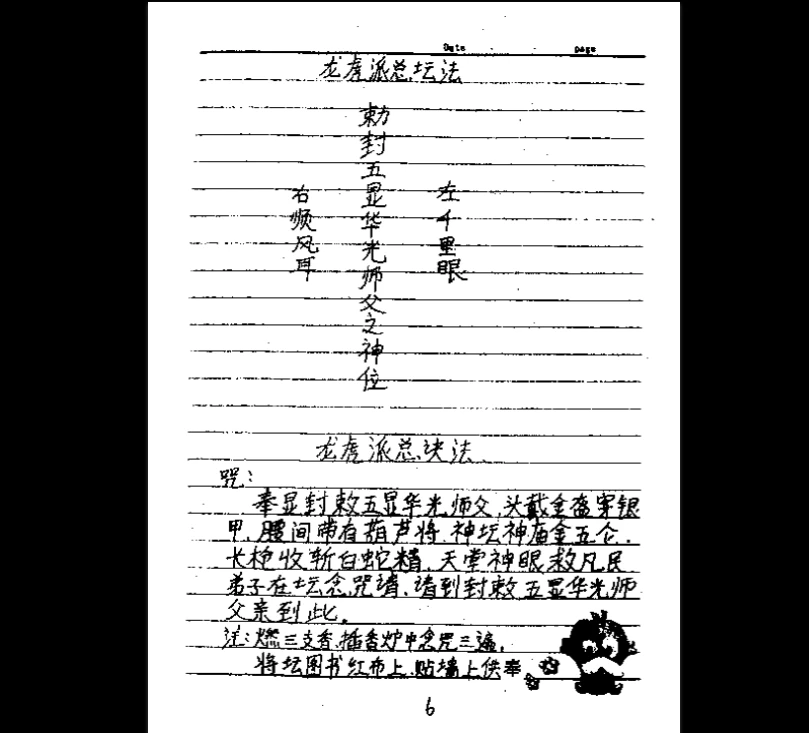 Date page
龙虎派总坛法
敕封五显华光师父之神位
左千里眼
右顺风耳
龙虎派总诀法
咒：
奉显封敕五显华光师父，头戴金盔穿银
甲，腰间带有葫芦将，神坛神庙金五仑，
长枪收斩白蛇精，天堂神眼救凡民
弟子在坛念咒请，请到封敕五显华光师
父亲到此。
注：燃三支香，插香炉中念咒三遍，
将坛图书红布上，贴墙上供奉
6